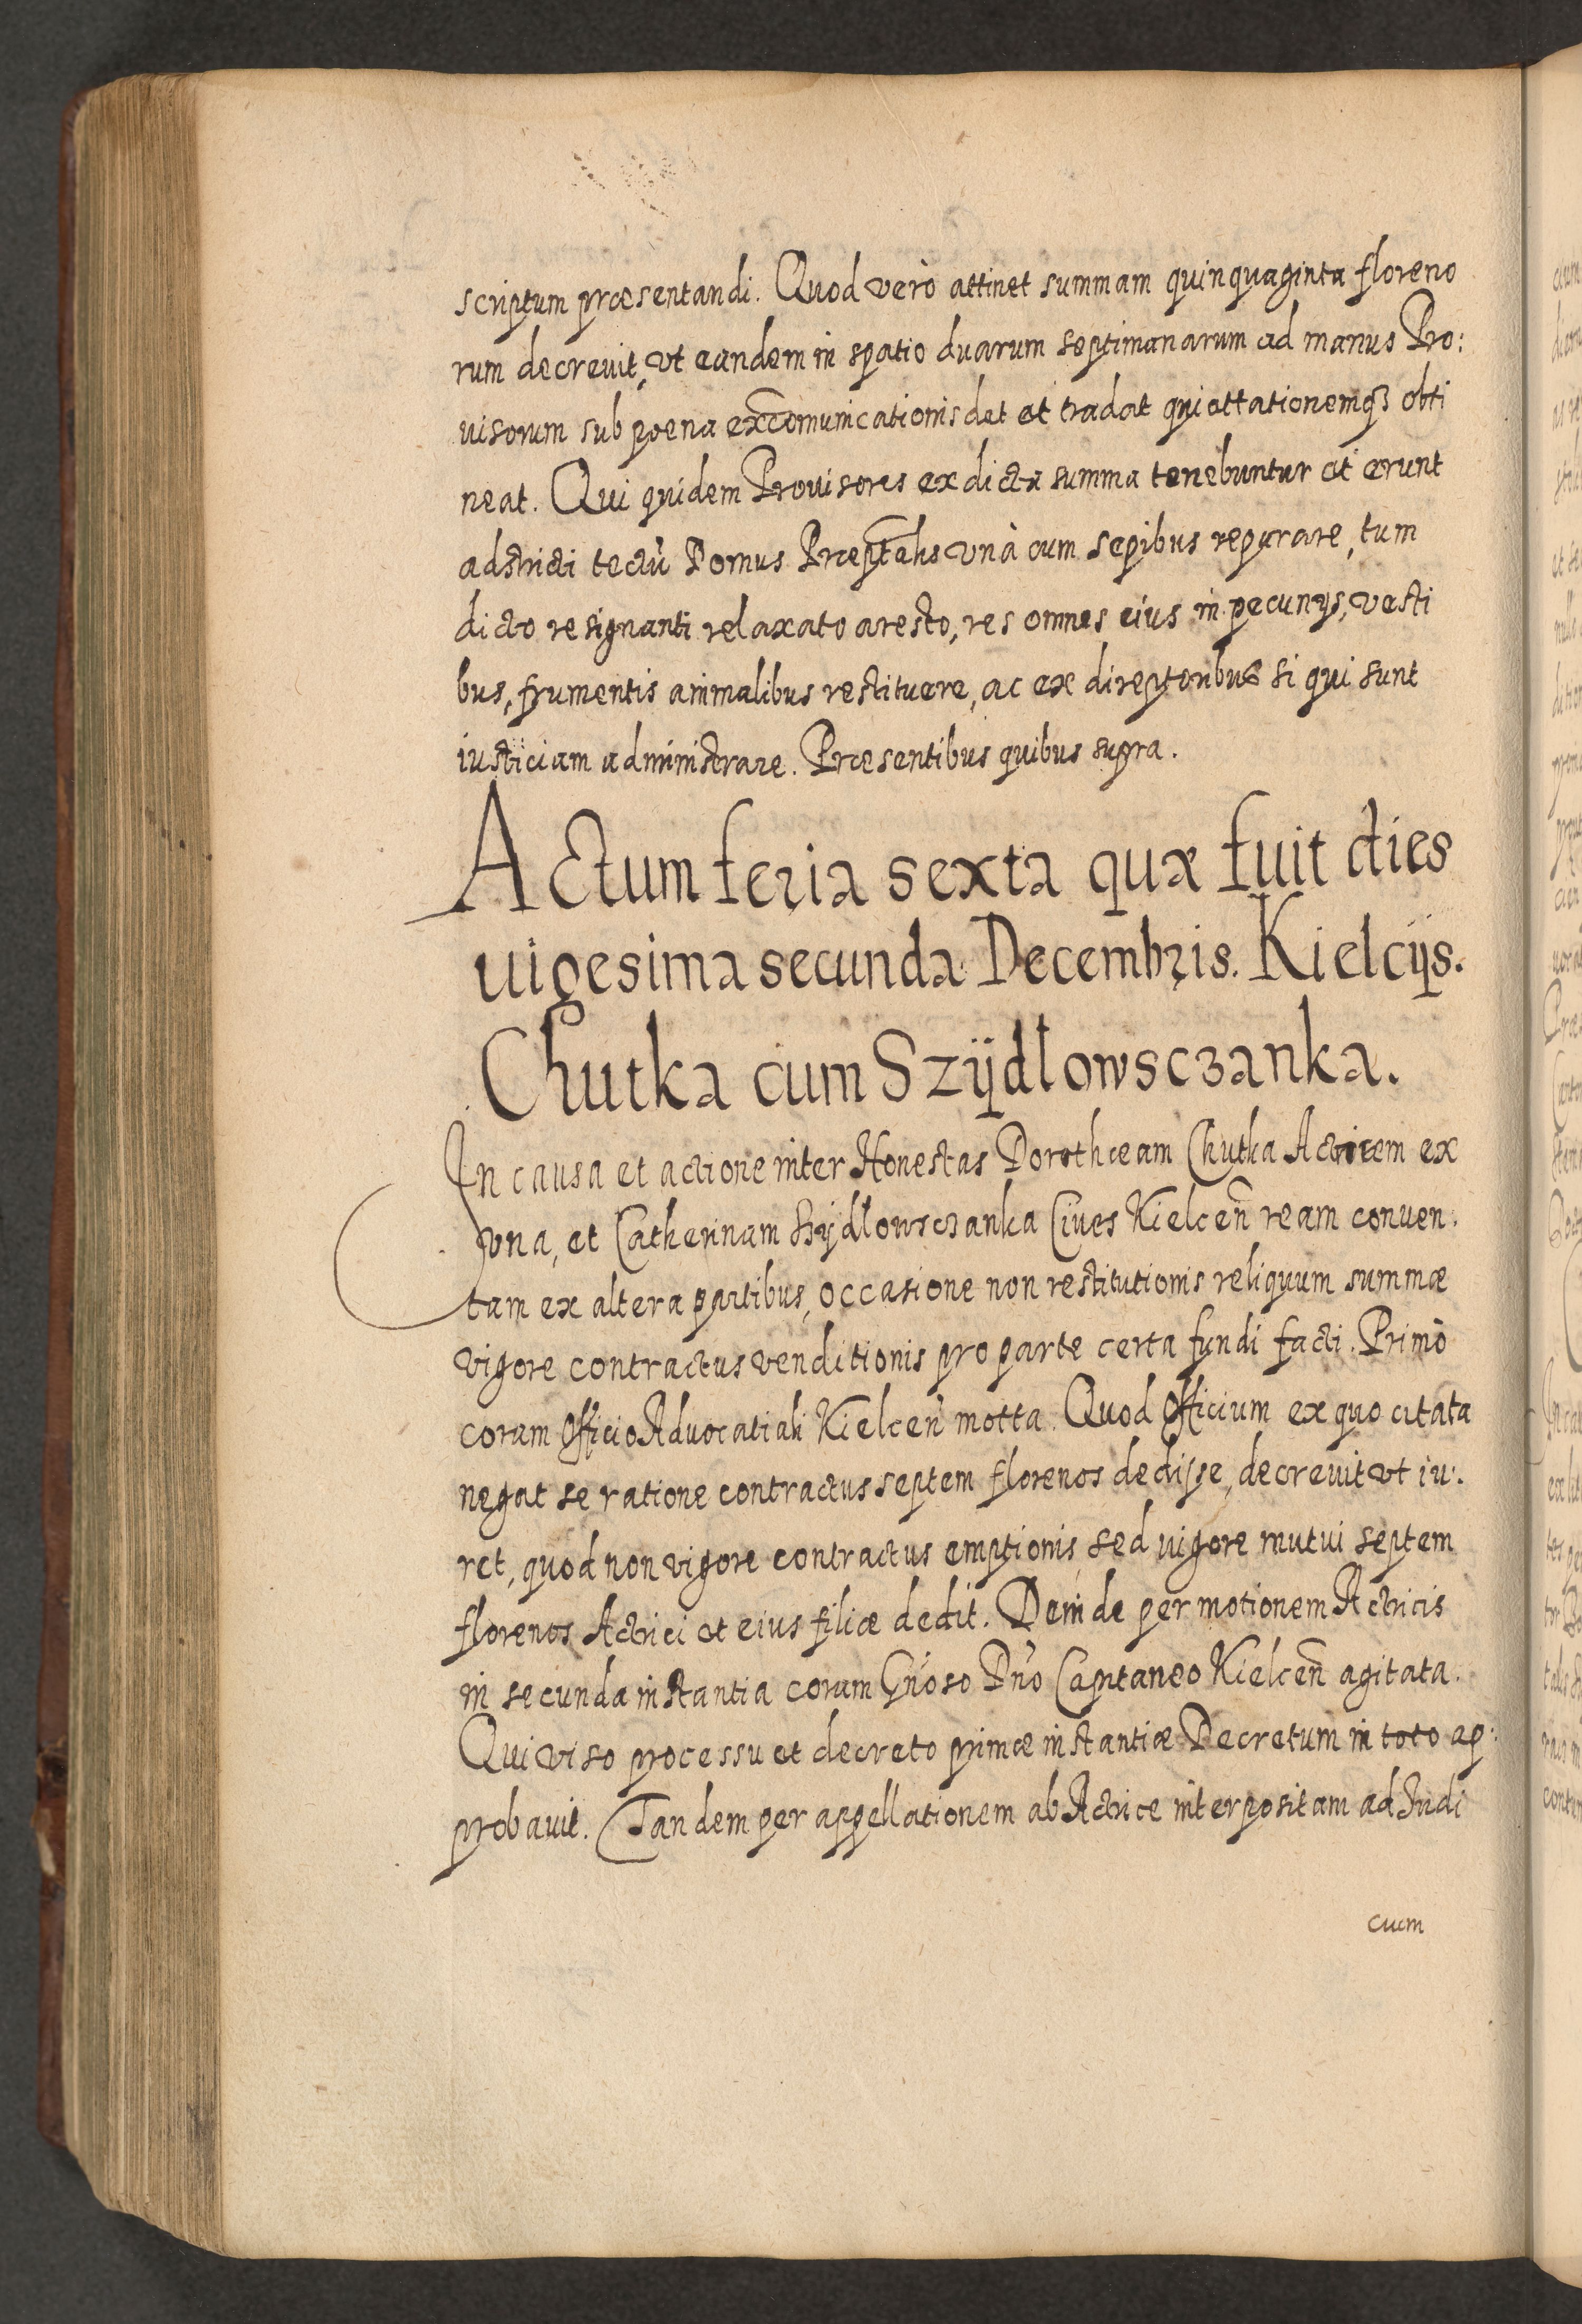 scriptum præsentandi. Quod verò attinet summam quinquaginta floreno
rum decrevit, vt eandem in spatio duarum septimanarum ad manus Pro:
uisorum sub poena excomunicationis det et tradat quiettationemqȝ obti
neat. Qui quidem Prouisores ex dicta summa tenebuntur et erunt
adstricti tectū Domus Præptalis vnà cum sepibus reparare, tum
dicto resignanti relaxato aresto, res omnes eius in pecunijs, vesti
bus, frumentis animalibus restituere, ac ex direptoribus si qui sunt
iusticiam administrare. Præsentibus quibus supra.
Actum feria sexta quæ fuit dies
uigesima secunda Decembris. Kielcijs.
Chutka cum Szÿdlowsczanka.
In causa et actione inter Honestas Dorotheam Chutka Actricem ex
vna, et Catherinam Szÿdlowsczanka Ciues Kielcen̄ ream conuen:
tam ex altera partibus, occasione non restitutionis reliquum summæ
vigore contractus venditionis pro parte certa fundi facti. Primò
coram Officio Aduocatiali Kielcen̄ motta. Quod Officium ex quo citata
negat se ratione contractus septem florenos dedisse, decreuit vt iu:
ret, quod non vigore contractus emptionis sed uigore mutui septem
florenos Actrici et eius filiæ dedit. Deinde per motionem Actricis
in secunda instantia coram Gn̄oso Dn̄o Captaneo Kielcen̄ agitata.
Qui viso processu et decreto primæ instantiæ Decretum in toto ap:
probauit. Tandem per appellationem ab Actrice interpositam ad Iudi
cium